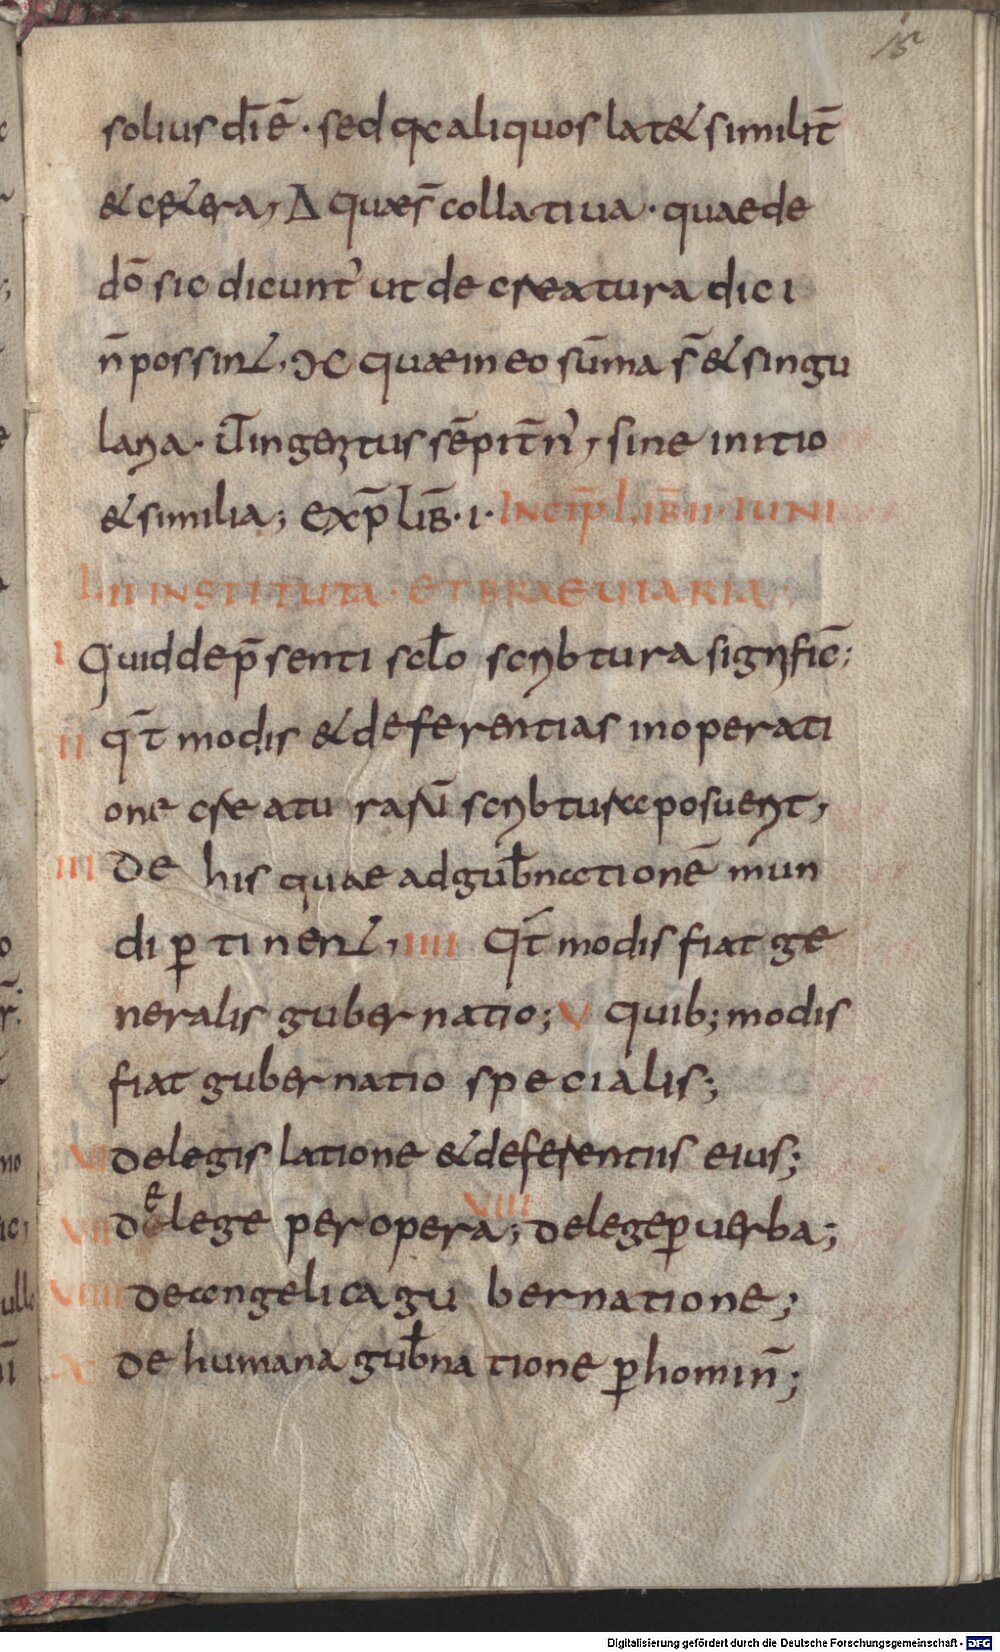 15
solius dī ē· sed qa aliquos lat& similit̄
& cetera, Δ quae s̄ collatiua· quaede
dō sic dicunt' ut de creatura dici
n̄ possint, Ↄ C quae in eo sūma s̄ & singu
laria· ut̄ ingenitus sēpit̄n', sine initio
& similia; exp̄ liƀ·i· Incip̄ liƀ ii· iuni
lii instituta· et braeuiaria;
i Quid de p̄senti sclo scribtura signific̄;
ii q̄t modis & deferentias in operati
one creaturarū scribtura posuerit,
iii De his quae ad guƀnationē mun
di ꝑtinent, iiii Q̄t modis fiat ge
neralis gubernatio; v quib; modis
fiat gubernatio specialis;
vi de legis latione & deferentiis eius;
vii de lege per opera; viii de lege ꝑ uerba;
viiii de angelica gubernatione;
x de humana guƀnatione ꝑ homin̄;
Digitalisierung gefördert durch die Deutsche Forschungsgemeinschaft - DFG